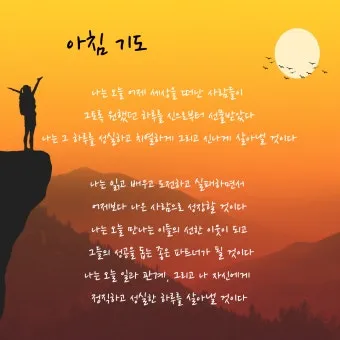 아침 기도
나는 오늘 어제 세상을 떠난 사람들이
그토록 원했던 하루를 신으로부터 선물받았다
나는 그 하루를 성실하고 치열하게 그리고 신나게 살아낼 것이다
나는 읽고 배우고 도전하고 실패하면서
어제보다 나은 사람으로 성장할 것이다
나는 오늘 만나는 이들의 선한 이웃이 되고
그들의 성공을 돕는 좋은 파트너가 될 것이다
나는 오늘 일과 관계, 그리고 나 자신에게
정직하고 성실한 하루를 살아낼 것이다